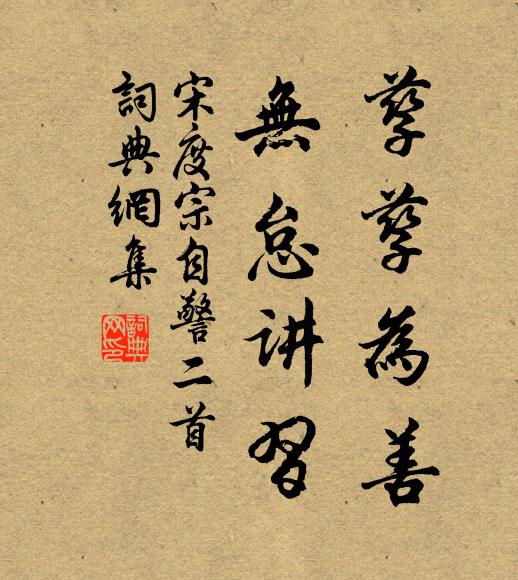 孶孶為善
無怠讲習
宋度宗自警二首
詞典網集
詞典网印